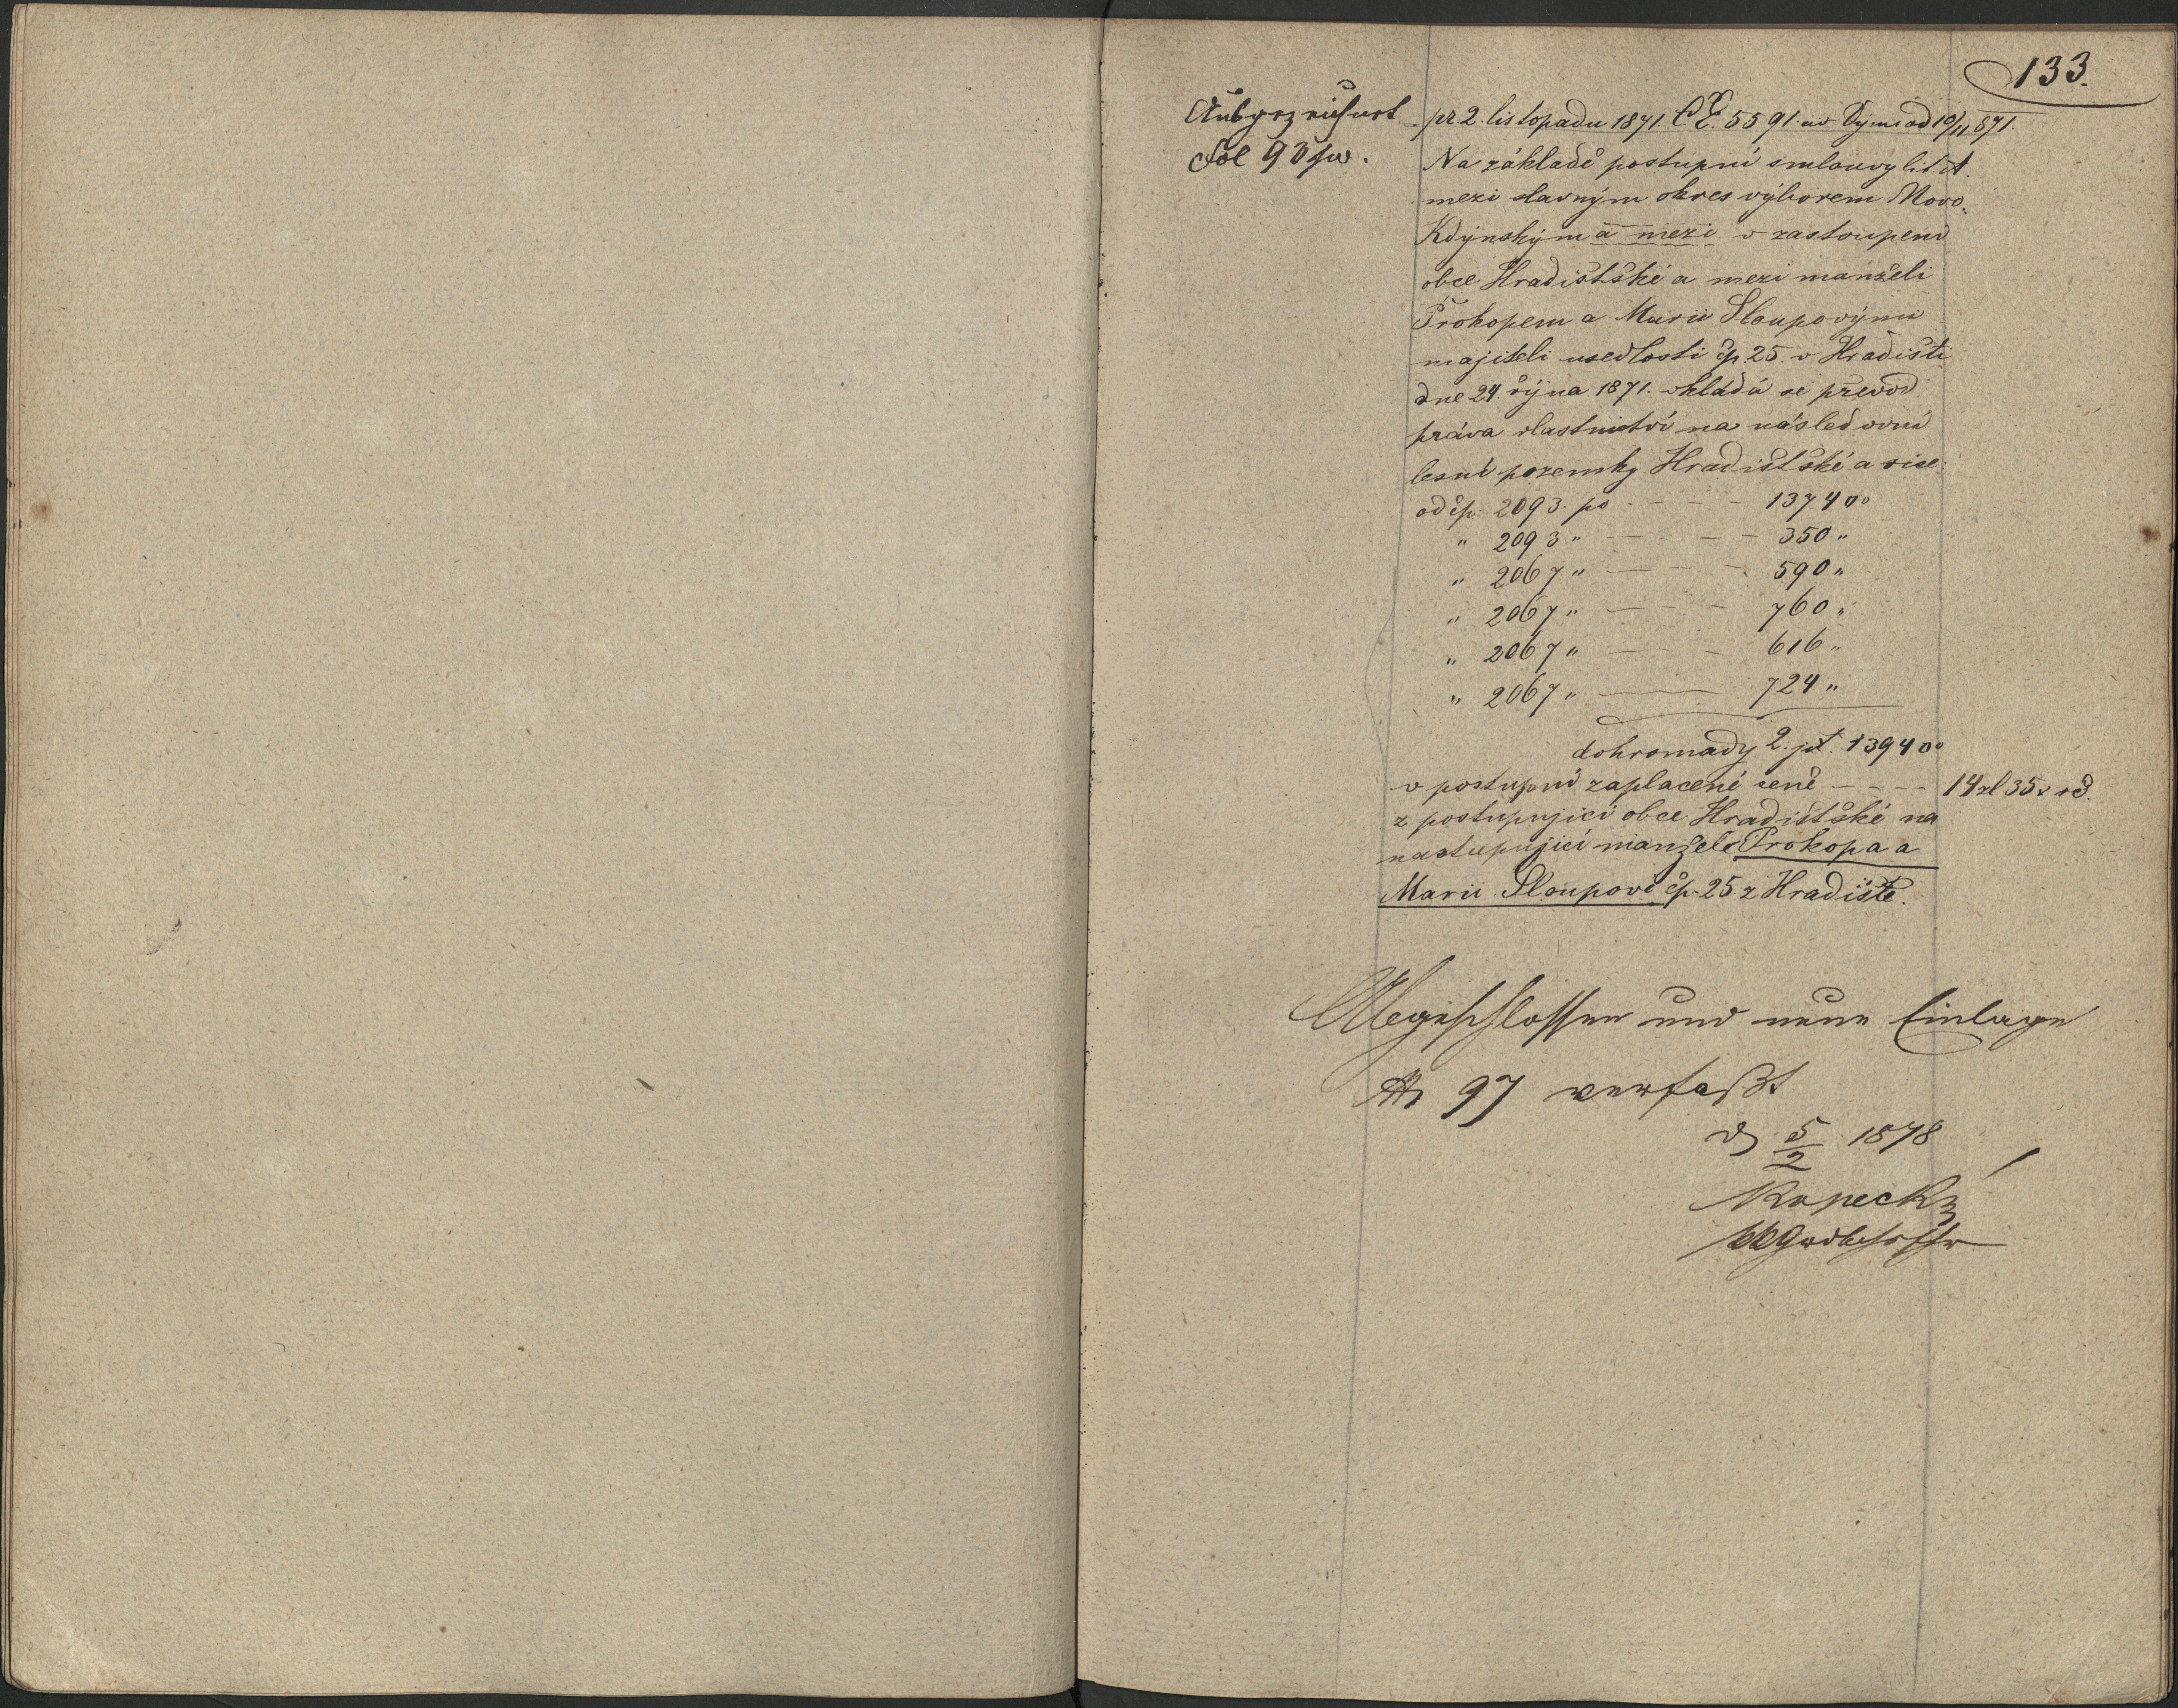 133.
Ausgezeichnet
Fol 93
pr 2. listopadu 1871. ČE. 5591. 10/11 871.
Na základě postupní smlouvy lit. A.
mezi slavným okres výborem Novo
Kdýnským a mezi v zastoupení
obce Hradištské a mezi manželi
Prokopem a Marii Sloupovými
majiteli usedlosti čp. 25. v Hradišti
dne 24. října 1871. vkládá se převod
práva vlastnictví na následovní
lesní pozemky Hradištské a sice:
od čp. 2093. po - - - 1374 □°
" 2093 " - - - - 350 "
" 2067 " - - - 590 "
" 2067 " - - - 760 "
" 2067 " - - - 616 "
" 2067 " - - - 724 "
dohromady 2. jit. 1394 □°
v postupní zaplacené ceně - - - - 14 zl 35 x
z postupující obce Hradištské na
nastupující manžele Prokopa a
Marii Sloupovi čp. 25 z Hradiště.
Abgeschlossen und neue Einlage
No 97 verfaßt
5/2 1878
Kopecký